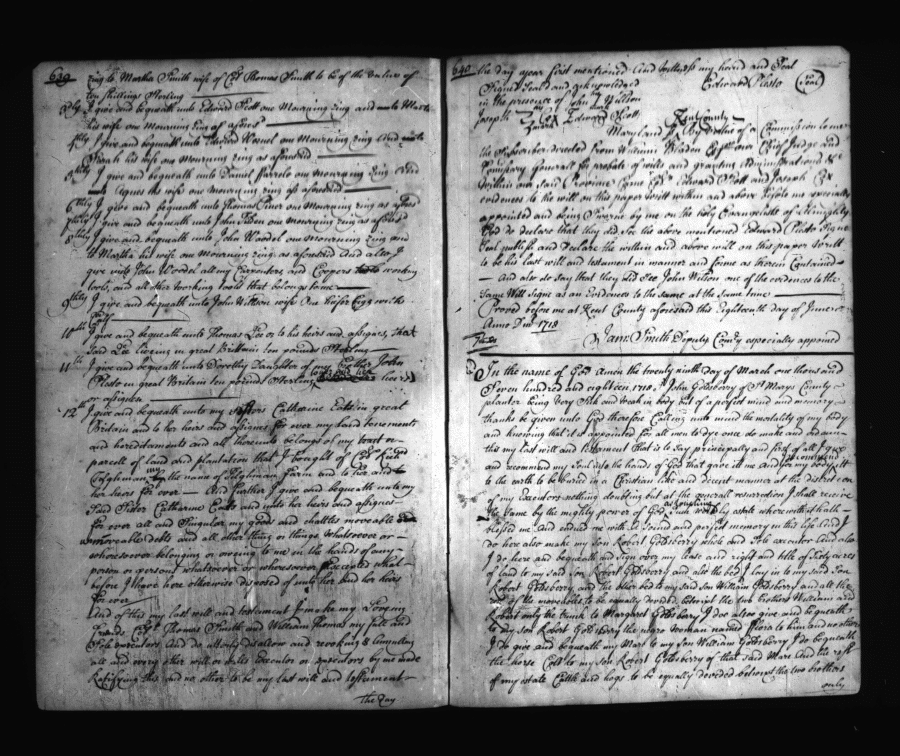 639
ring to Martha Smith wife of Col Thomas Smith to be of the value of
ten shillings Sterling
3thly I give and bequeath unto Edward Scott one Mourning Ring and unto Martha
his wife one Mourning Ring as afores
4thly I give and bequeath unto Edward Worrel one Mourning Ring And unto
Sarah his wife one Mourning ring as aforesaid
5thly I give and bequeath unto Daniel one Mourning Ring And
unto Agnes his wife one Mourning ring as aforesaid
6thly I give and bequeath unto Thomas Piner one Mourning ring as afores
7thly I give and bequeath unto John one Mourning ring as afores
8thly I give and bequeath unto John Woodel one Mourning Ring and
to Martha his wife one Mourning ring as aforesaid And also I
give unto John Woodel all my Carpenters and Coopers working
tools, and all other working tools that belongs to me
9thly I give and bequeath unto John Willson wife One
10th I give and bequeath unto Thomas Lee or to his heirs and assignes, that
said Lee liveing in great Brittain ten pounds Sterling
11th I give and bequeath unto Dorothy Daughter of my brother John
Plesto in great Britain ten pounds Sterling heirs
or assignes
12th I give and bequeath unto my sisters Catharine in great
Britain and to her heirs and assignes for ever my land tenements
and hereditaments and all thereunto belongs of my tract or
parcell of land and plantation that I bought of Col Richd
Tilghman by the name of Tilghman Farm and to her and
her heirs for ever And further I give and bequeath unto my
said Sister Catharine and unto her heirs and assignes
for ever all and singular my goods and chattles moveable and
unmoveable debts and all other thing or things whatsoever or
whersoever belonging or oweing to me in the hands of any
person or persons whatsoever or wheresoever Excepted what
before I have here otherwise disposed of unto her and her heirs
for ever
And of this my last will and testement I make my loveing
friends Col Thomas Smith and William Thomas my full and
Sole executors And do utterly disallow and revoking & anulling
all and every other will or wills Executor or Executors by me made
Ratifying this and no other to be my last will and testament
The Day
640
the day year first mentioned And Wittness my hand and Seal
Signed Seald and acknowledged Edward Plesto (Seal)
in the presence of John Willson
Joseph Edward Scott
Kent County
Maryland ss By Virtue of a Commission to me
the Subscriber directed from William Bladen Esqr our Chief Judge and
Comissary Generall for probate of wills and granting administrations &c
within our said Province Came Edward Scott and Joseph
evidences to the will on this paper writt within and above before me especially
appointed and being Sworne by me on the Holy Evangelists of Almighty
God do declare that they did See the above mentioned Edward Plesto Signe
Seal publish and Declare the within and above will on this paper Writt
to be his last will and testament in manner and forme as therein Contained
And also do say that they did See John Wilson one of the evidences to the
same Will signe as an Evidence to the same at the same time
Proved before me at Kent County aforesaid this Eighteenth day of June
Anno Dm 1718
James Smith Deputy Comry especially appointed
In the name of God Amen the twenty ninth day of March one thousand
Seven hundred and eighteen 1718 I John Goldsberry of St Marys County
planter being Very Sick and weak in body but of a perfect mind and memory
thanks be given unto God therefore Calling unto mind the mortality of my body
and knowing that it is appointed for all men to dye once do make and ordain
this my last will and testement that is to say principally and first of all I give
and recommend my Soul into the hands of God that gave it me And for my body I recommend it
to the earth to be buried in a Christian like and decent manner at the discretion
of my Executors nothing doubting but at the generall resurrection I shall receive
the same by the mighty power of God touching such worldly estate wherewith it hath
blessed me And endued me with a Sound and perfect memory in this life And I
do here also make my Son Robert Goldsberry whole and Sole executor And also
I do here and bequeath and sign over my lease and right and title of Sixty acres
of land to my said Son Robert Goldsberry and also the bed I lay in to my said Son
Robert Goldsberry and the other bed to my said Son William Goldsberry and all the
rest of the moveables to be equally devided betwixt the two brothers William and
Robert only the trunk to Margaret Goldsberry I doe also give and bequeath
to my Son Robert Goldsberry the negro Woman named Flora to him and no other
I do give and bequeath my Mare to my Son William Goldsberry I do bequeath
the horse Colt to my Son Robert Goldsberry of that said Mare And the rest
of my estate Cattle and hogs to be equally devided betwixt the two brothers
only